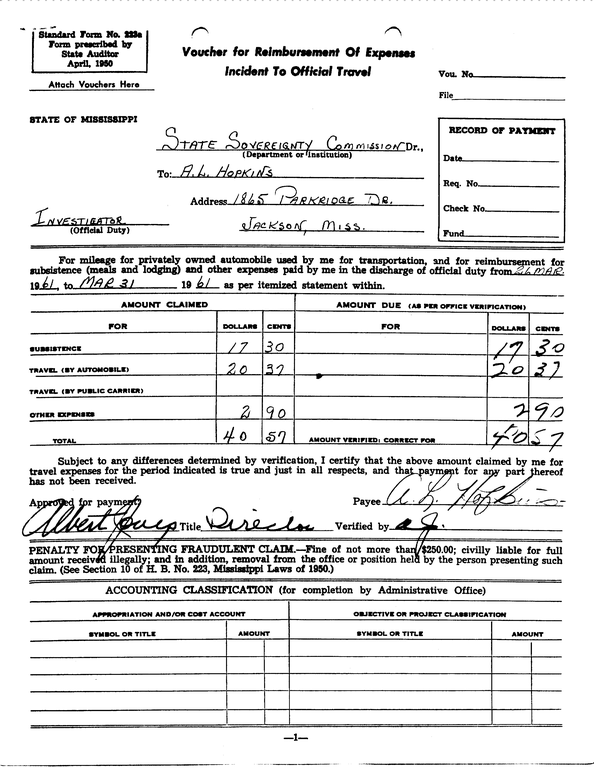 Standard Form No. 223a
Form prescribed by
State Auditor
April, 1950
Attach Vouchers Here
Voucher for Reimbursement Of Expenses
Incident To Official Travel
Vou. No.
File
STATE OF MISSISSIPPI
STATE SOVEREIGNTY COMMISSION Dr.,
(Department or Institution)
To: A.L. HOPKINS
Address 1865 PARKRIDGE DR.
INVESTIGATOR
(Official Duty)
JACKSON, MISS.
RECORD OF PAYMENT
Date
Req. No.
Check No.
Fund
For mileage for privately owned automobile used by me for transportation, and for reimbursement for
subsistence (meals and lodging) and other expenses paid by me in the discharge of official duty from 26 MAR
1961, to MAR 31 1961 as per itemized statement within.
AMOUNT CLAIMED AMOUNT DUE (AS PER OFFICE VERIFICATION)
FOR DOLLARS CENTS FOR DOLLARS CENTS
SUBSISTENCE 17 30 17 30
TRAVEL (BY AUTOMOBILE) 20 37 20 37
TRAVEL (BY PUBLIC CARRIER)
OTHER EXPENSES 2 90 2 90
TOTAL 40 57 AMOUNT VERIFIED: CORRECT FOR 40 57
Subject to any differences determined by verification, I certify that the above amount claimed by me for
travel expenses for the period indicated is true and just in all respects, and that payment for any part thereof
has not been received.
Approved for payment Payee A. L. Hopkins
Albert Jones Title Director Verified by aJ.
PENALTY FOR PRESENTING FRAUDULENT CLAIM.—Fine of not more than $250.00; civilly liable for full
amount received illegally; and in addition, removal from the office or position held by the person presenting such
claim. (See Section 10 of H. B. No. 223, Mississippi Laws of 1950.)
ACCOUNTING CLASSIFICATION (for completion by Administrative Office)
APPROPRIATION AND/OR COST ACCOUNT OBJECTIVE OR PROJECT CLASSIFICATION
SYMBOL OR TITLE AMOUNT SYMBOL OR TITLE AMOUNT
—1—